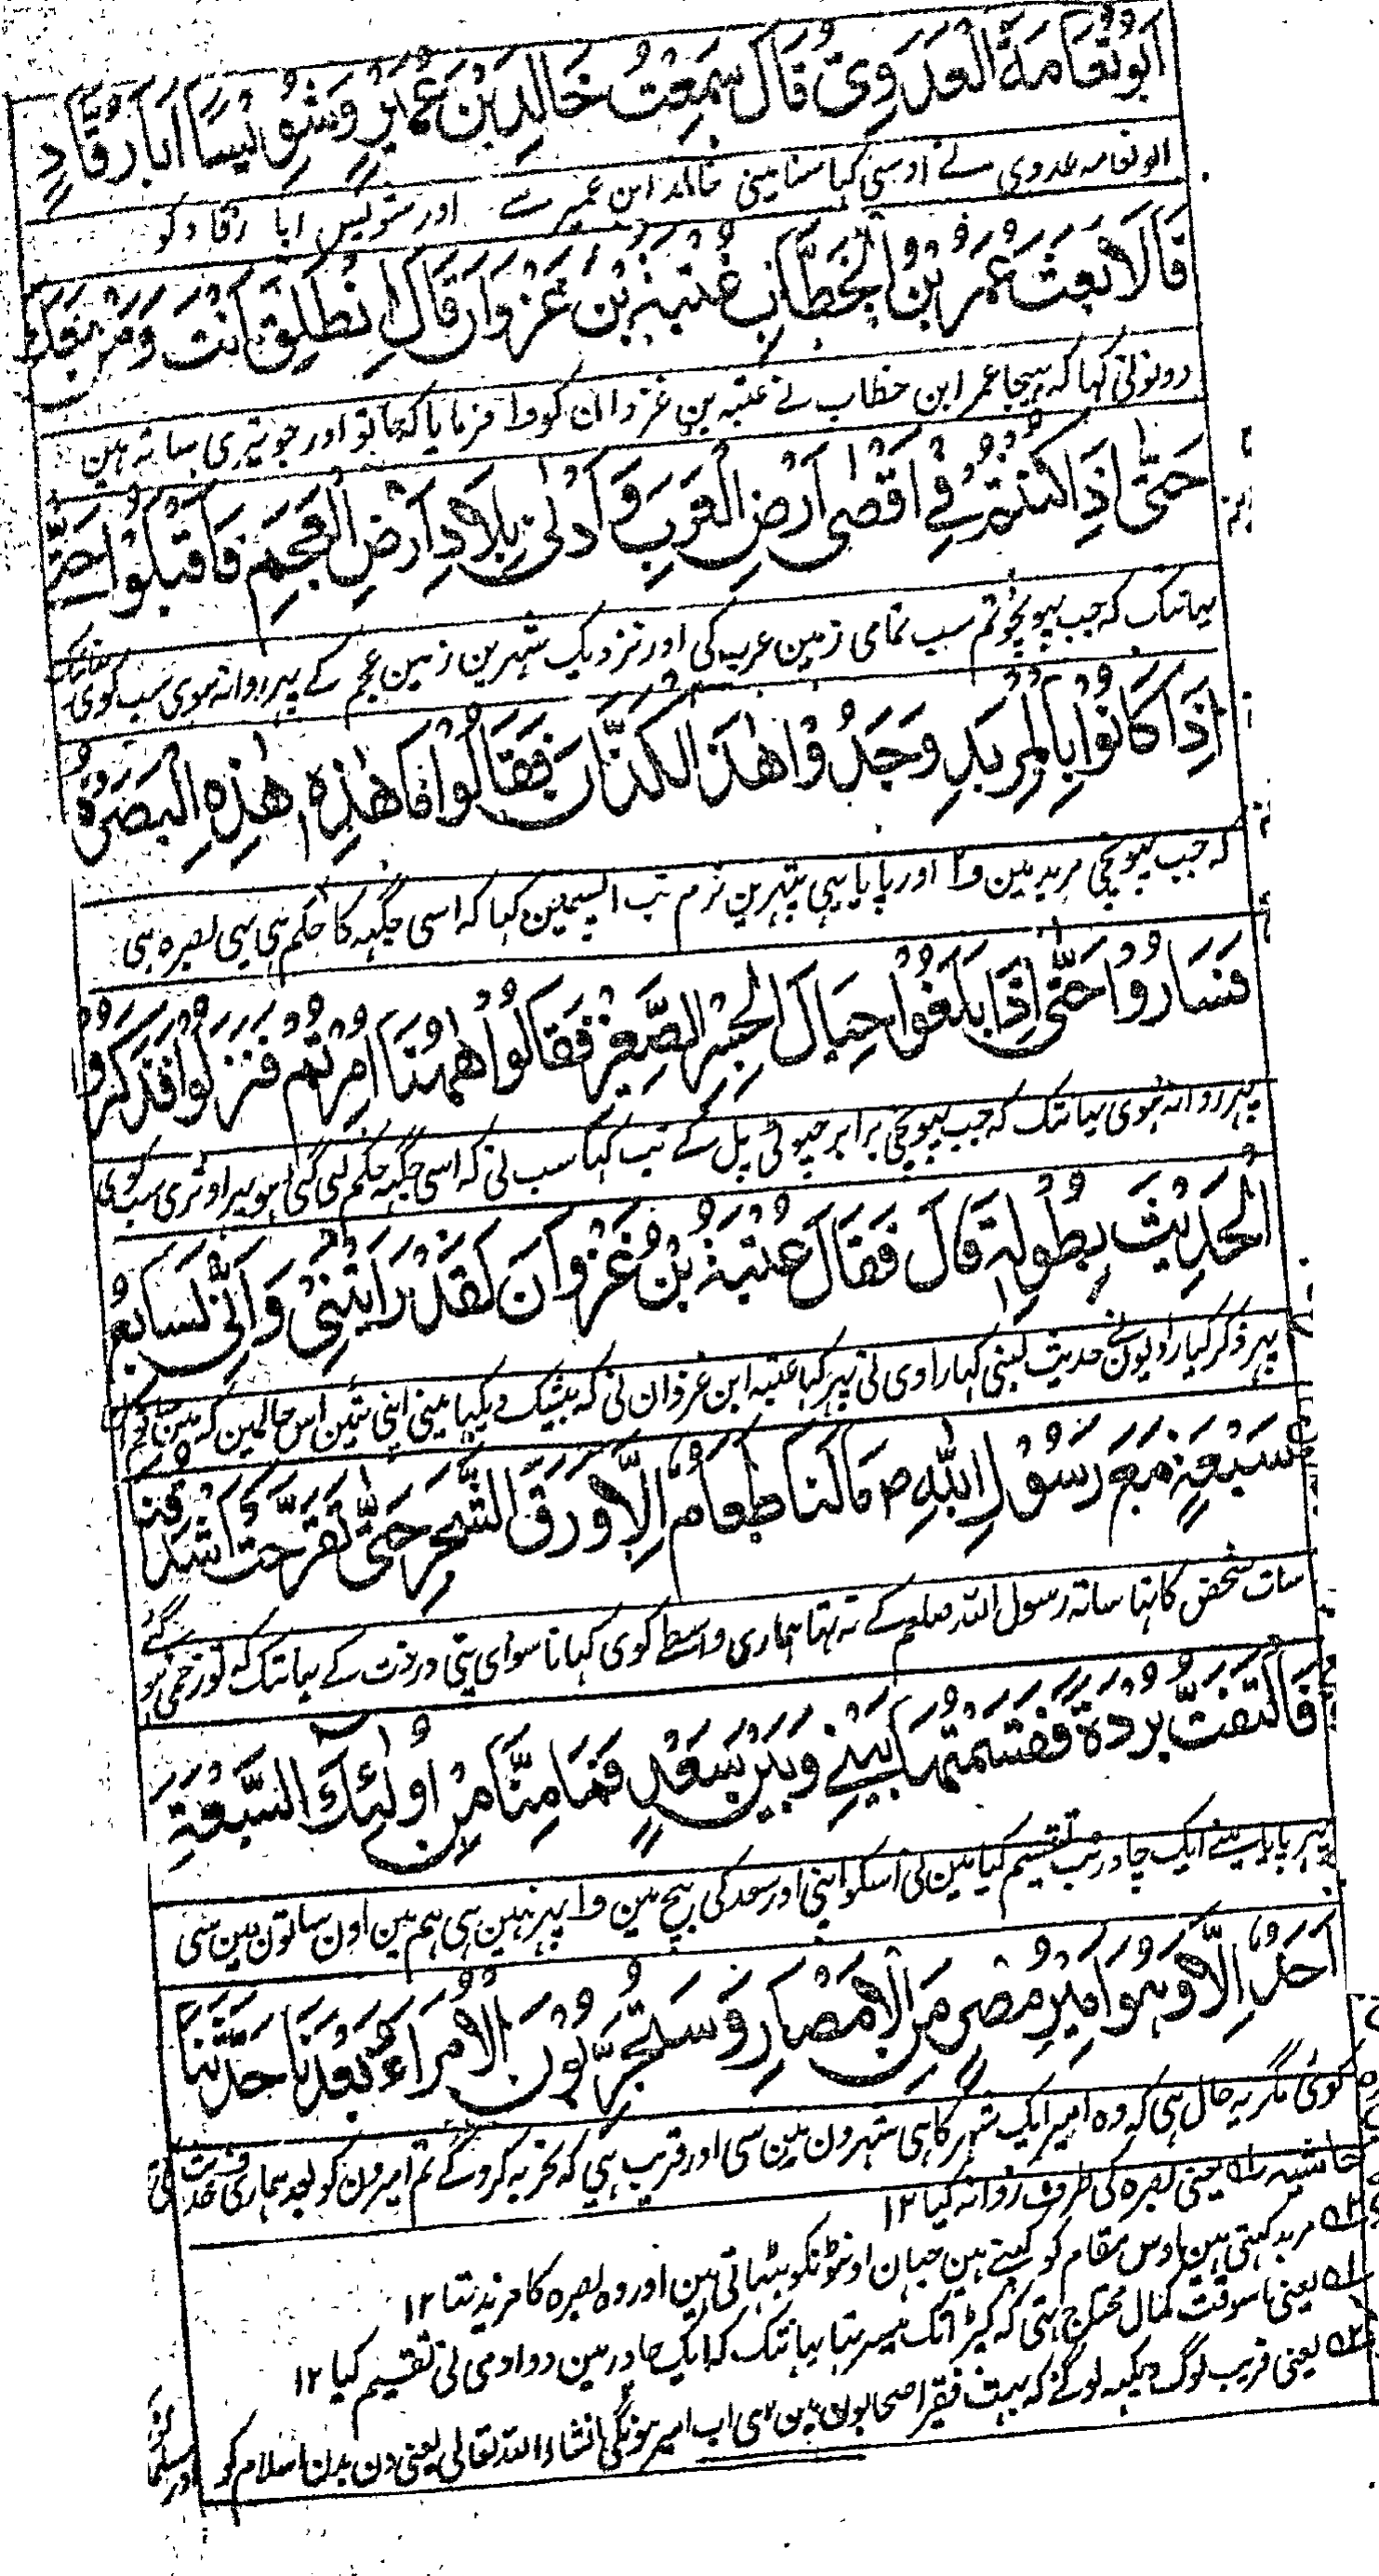 اَبُوْنَعَامَةَ الْعَدَوِيُّ قَالَ سَمِعْتُ خَالِدَ بْنَ عُمَيْرٍ وَشُوَيْسًا اَبَا رَقَّادٍ
ابو نعامہ عدوی نے اوسنی کہا سنا مینی خالد ابن عمیر سے اور شویس ابا رقاد کو
قَالَا بَعَثَ عُمَرُ بْنُ الْخَطَّابِ عُتْبَةَ بْنَ غَزْوَانَ وَقَالَ اِنْطَلِقْ اَنْتَ وَمَنْ مَعَكَ
دونونی کہا کہ بہیجا عمر ابن خطاب نے عتبہ بن غزوان کو ۱ فرمایا کہ جا تو اور جو تیری ساتہ ہین
حَتّٰى اِذَا كُنْتُمْ فِيْ اَقْصٰى اَرْضِ الْعَرَبِ وَاَدْنٰى بِلَادِ اَرْضِ الْعَجَمِ فَاَقْبَلُوْا حَتّٰى
یہانتک کہ جب پہونچو تم سب تمامی زمین عرب کی اور نزدیک شہرین زمین عجم کے پہر روانہ ہوی سب کوی یہانتک
اِذَا كَانُوْا بِالْمِرْبَدِ وَجَدُوْا هٰذَا الْكَذَّانَ فَقَالُوْا مَا هٰذِهِ هٰذِهِ الْبَصْرَةُ
کہ جب پہونچی مربد مین ۲ اور پایا یہی پتہرین نرم تب آپسمین کہا کہ اسی جگہہ کا حکم ہی یہی بصرہ ہی
فَسَارُوْا حَتّٰى اِذَا بَلَغُوْا حِيَالَ الْجِسْرِ الصَّغِيْرِ فَقَالُوْا هٰهُنَا اُمِرْتُمْ فَنَزَلُوْا فَذَكَرُوْا
پہر روانہ ہوی یہانتک کہ جب پہونچی برابر چہوٹی پل کے تب کہا سب نی کہ اسی جگہہ حکم کئی گئی ہو پہر اوتری سب کوی
الْحَدِيْثَ بِطُوْلِهٖ قَالَ فَقَالَ عُتْبَةُ بْنُ غَزْوَانَ لَقَدْ رَاَيْتُنِيْ وَاِنِّيْ لَسَابِعُ
پہر ذکر کیا راویون نے حدیث لنبی کہا راوی نی پہر کہا عتبہ ابن غزوان نی کہ بیشک دیکہا مینی اپنی تئین اس حالمین کہ مین
سَبْعَةٍ مَعَ رَسُوْلِ اللّٰهِ ص مَا لَنَا طَعَامٌ اِلَّا وَرَقَ الشَّجَرِ حَتّٰى تَقَرَّحَتْ اَشْدَاقُنَا
سات شخص کا تہا ساتہ رسول اللہ صلعم کے نہ تہا ہماری واسطے کوی کہانا سوای پتی درخت کے یہانتک کہ زخمی ہو گئے
فَالْتَقَطْتُ بُرْدَةً فَقَسَمْتُهَا بَيْنِيْ وَبَيْنَ سَعْدٍ فَمَا مِنَّا مِنْ اُولٰئِكَ السَّبْعَةِ
پہر پایا مینے ایک چادر تب تقسیم کیا مین نی اسکو اپنی اور سعد کی بیچ مین ۱ پہر نہین ہی ہم مین اون ساتون مین سی
اَحَدٌ اِلَّا وَهُوَ اَمِيْرُ مِصْرٍ مِنَ الْاَمْصَارِ وَسَتُجَرِّبُوْنَ الْاُمَرَاءَ بَعْدَنَا حَدَّثَنَا
کوئی مگر یہ حال ہی کہ وہ امیر ایک شہر کا ہی شہرون مین سی اور قریب ہی کہ تجربہ کروگے تم امیرون کو بعد ہماری حدیث کی
حاشیہ ۱ یعنی بصرہ کی طرف روانہ کیا ۱۲
۲ مربد کہتی ہین اوس مقام کو کہتے ہین جہان اونٹونکو بٹہاتی ہین اور وہ بصرہ کا مربد تہا ۱۲
۱ یعنی اسوقت کمال محتاج تہی کہ کپڑا تک میسر نتہا یہانتک کہ ایک چادر مین دو آدمی نی تقسیم کیا ۱۲
۲ یعنی قریب لوگ دیکہہ لوگے کہ بہت فقیر اصحابون مین سی اب امیر ہونگی انشاء اللہ تعالی یعنی دن بدن اسلام کو